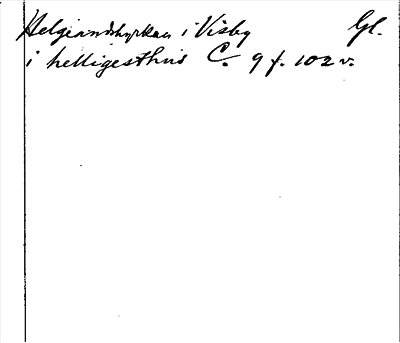 Helgeandskyrkan i Visby Gl.
i helligesthus C. 9 f. 102 v.